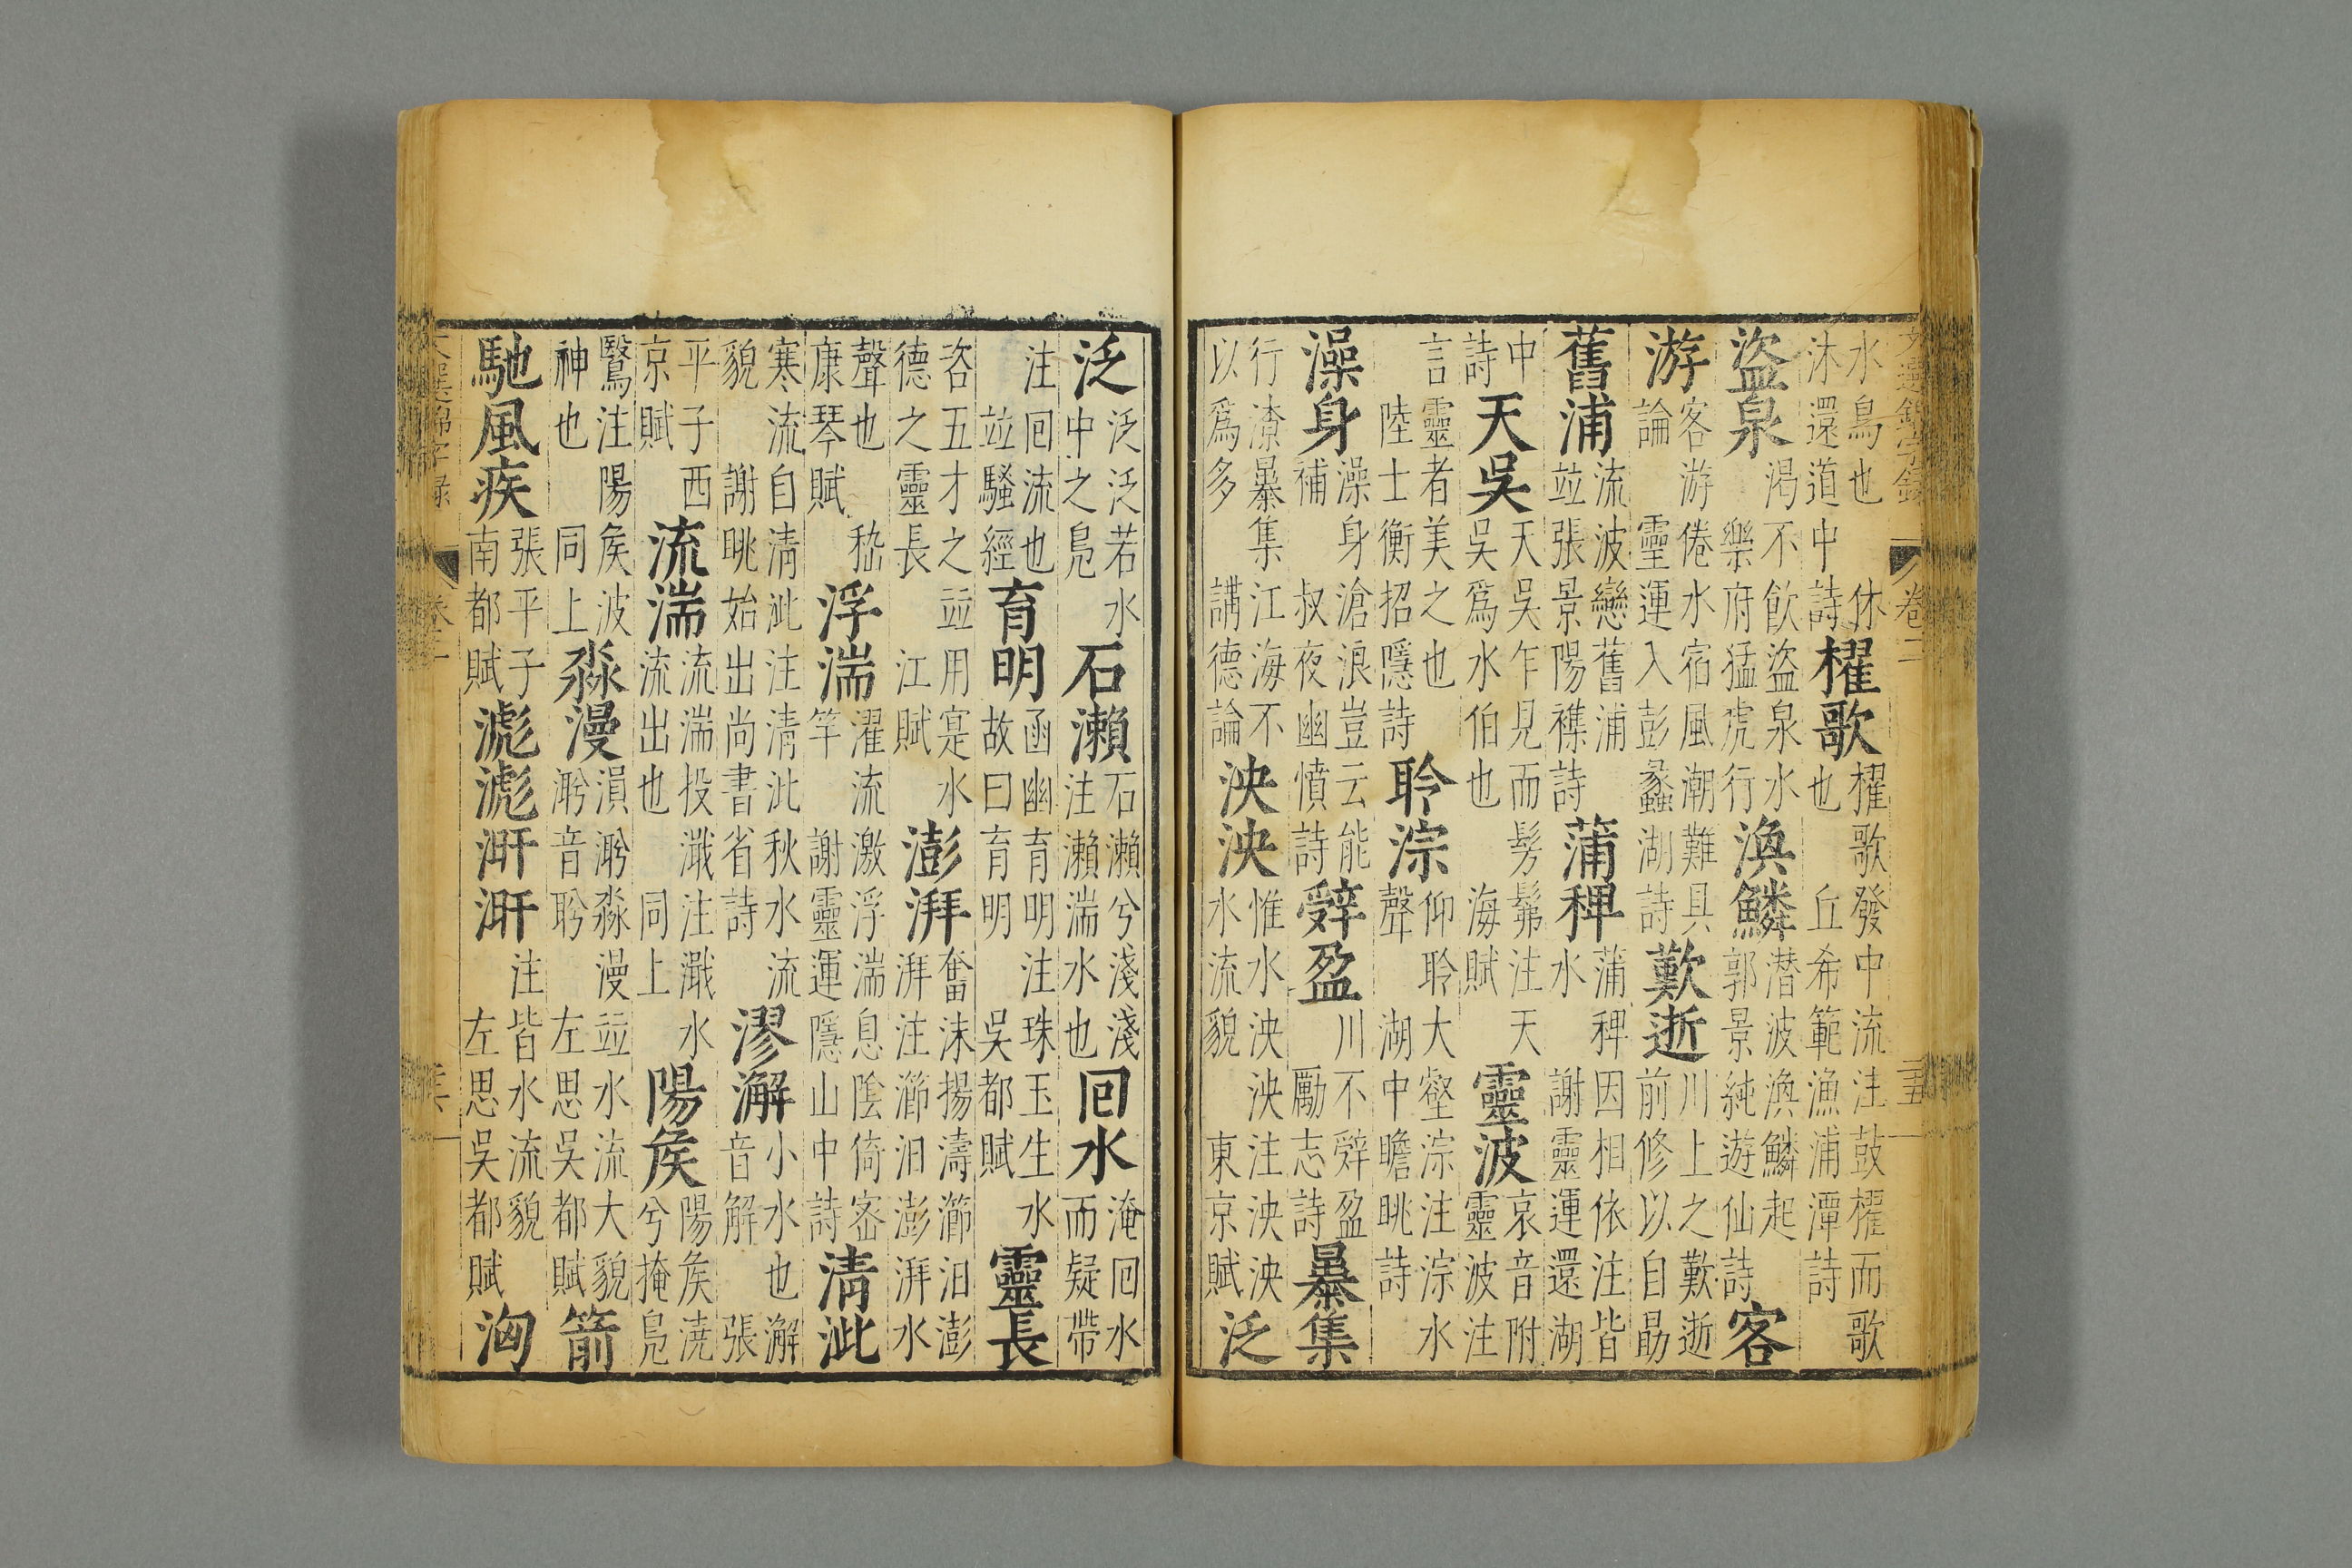 文選錦字錄 卷二 二十五
水鳥也休沐還道中詩櫂歌櫂歌發中流注鼓櫂而歌也丘希範漁浦潭詩
盜泉渴不飲盜泉水樂府猛虎行渙鱗潛波渙鱗起郭景純遊仙詩客
游客游倦水宿風潮難具論靈運入彭蠡湖詩歎逝川上之歎逝前修以自勗
舊浦流波戀舊浦竝張景陽襍詩蒲稗蒲稗因相依注皆水謝靈運還湖
中詩天吳天吳乍見而髣髴注天吳爲水伯也海賦靈波哀音附靈波注
言靈者美之也陸士衡招隱詩聆淙仰聆大壑淙注淙水聲湖中瞻眺詩
澡身澡身滄浪豈云能補叔夜幽憤詩辤盈川不辤盈勵志詩暴集
行潦暴集江海不以爲多講德論泱泱惟水泱泱注泱泱水流貌東京賦泛
泛泛泛若水中之鳧石瀨石瀨兮淺淺注瀨湍水也回水淹回水而疑帶
注回流也竝騷經育明函幽育明注珠玉生水故曰育明吳都賦靈長
咨五才之竝用寔水德之靈長江賦澎湃奮沫揚濤瀄汩澎湃注瀄汩澎湃水
聲也嵇康琴賦浮湍濯流激浮湍息陰倚密竿謝靈運隱山中詩清泚
寒流自清泚注清泚秋水流貌謝眺始出尚書省詩漻澥小水也澥音解張
平子西京賦流湍流湍投濈注濈水流出也同上陽侯陽侯澆兮掩鳧
鷖注陽侯波神也同上淼漫淼漫竝水流大貌左思吳都賦箭
馳風疾張平子南都賦滮滮涆涆注皆水流貌左思吳都賦洶